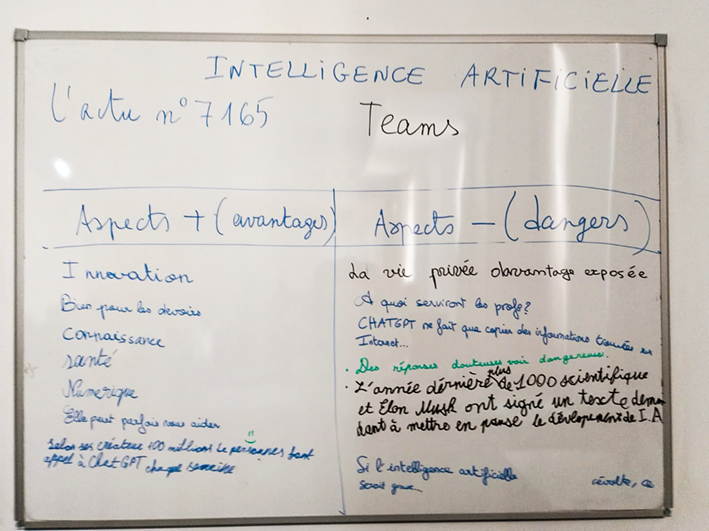 INTELLIGENCE ARTIFICIELLE
L'actu n°7165
Teams
Aspects + (avantages)
Innovation
Bien pour les devoirs
connaissance
santé
Numérique
Elle peut parfois nous aider
Selon ses créateur 100 millions de personnes font
appel à ChatGPT chaque semaine
Aspects - (dangers)
La vie privée davantage exposée
A quoi serviront les profs?
CHATGPT ne fait que copier des informations trouvées en
Internet...
. Des réponses douteuses voir dangereuses.
. L'année dérnière plus de 1000 scientifique
et Elon Musk ont signé un texte deman
dant à mettre en pause le dévlopement de I.A
Si l'intelligence artificielle révolte, ce
serait grave...